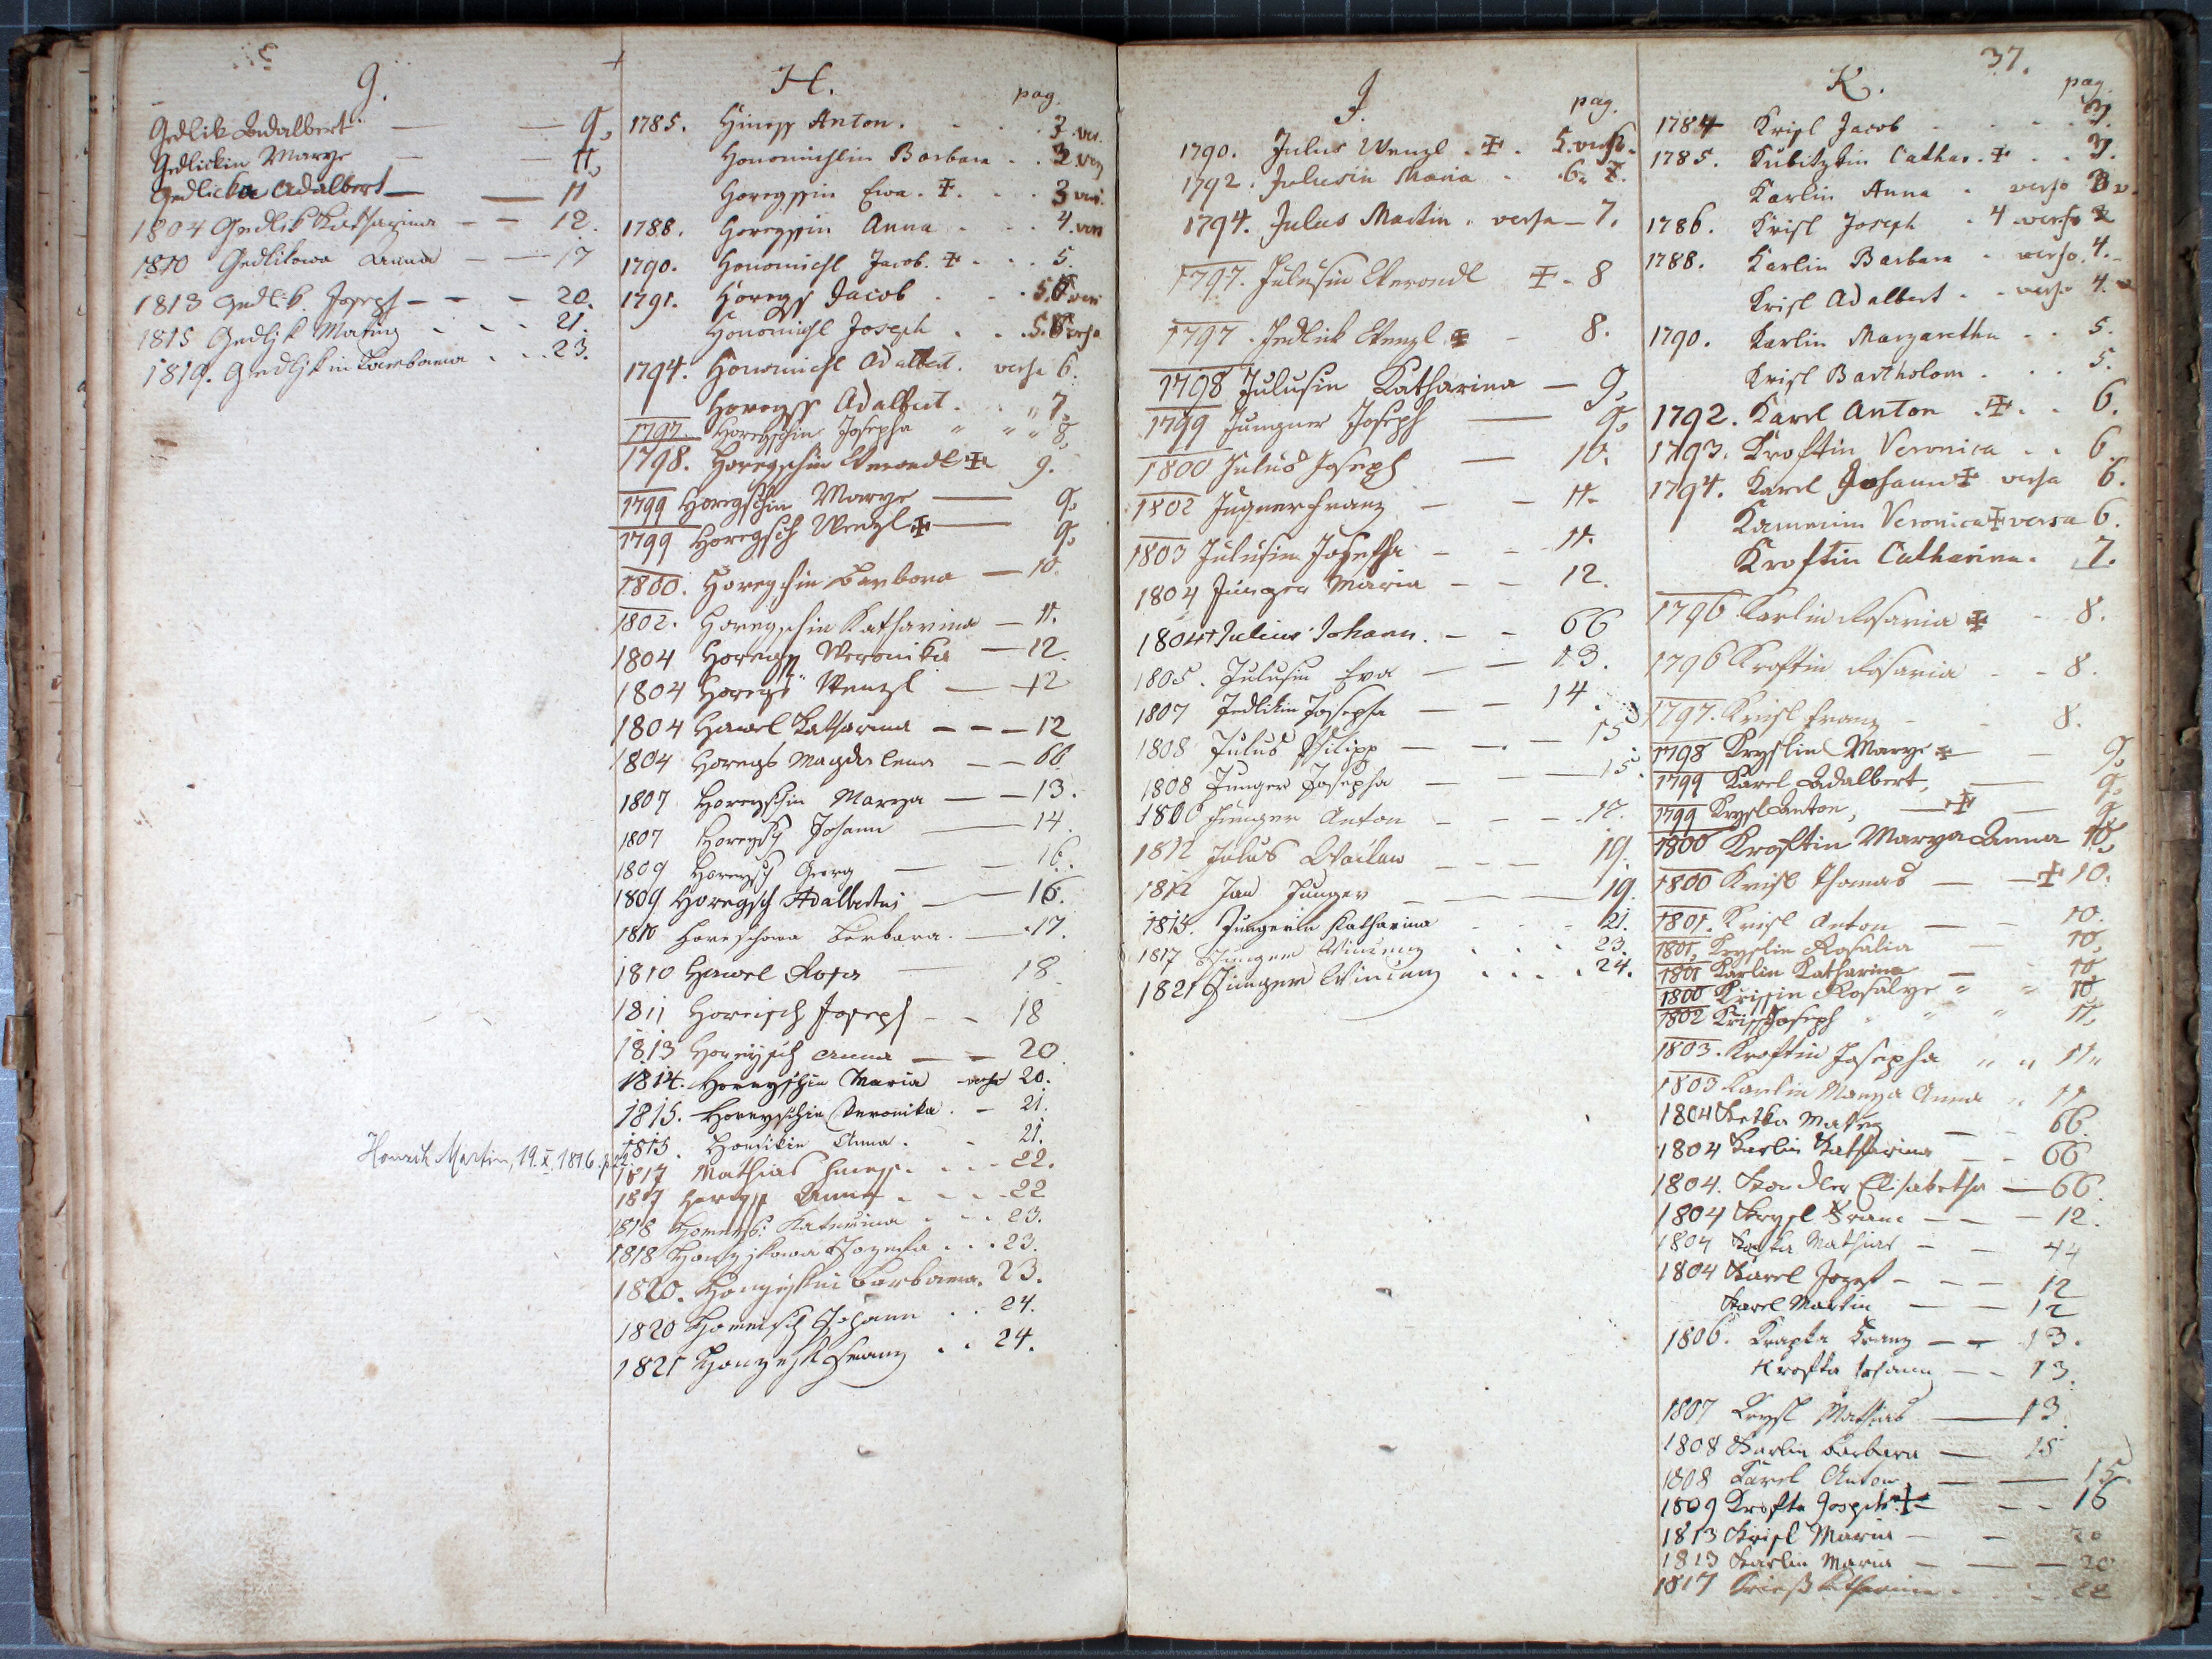 G.
Gedlik Adalbert — — 9.
Gedlickin Marye — — 11.
Gedlicka Adalbert — — 11
1804 Gedlik Katharina — — 12.
1810 Gedlikowa Anna — — 17
1813 Gedlik Joseph — — — 20.
1815 Gedlik Matieg . . . 21.
1819. Gedljkin Barbara . . . 23.
Martin, 19. X. 1816. p. 22
H.
pag.
1785. Hiness Anton. . . . 3 ver.
Honomichlin Barbara . . 3 ver
Horegssin Ewa . ✠ . . . 3 ver.
1788. Horegssin Anna . . . 4. ver
1790. Honomichl Jacob. ✠ . . . 5.
1791. Horegss Jacob . . .
Honomichl Joseph . . .
1794. Honomichl Adalbert. versa 6.
Horegss Adalbert. . " 7.
1797. Horegschin Josepha " " " 8.
1798. Horegschin Wenzl ✠ 9.
1799 Horegschin Marye — 9.
1799 Horegsch Wenzl ✠ — 9.
1800. Horegschin Barbora — 10.
1802. Horegschin Katharina — 11.
1804 Horegss Veronika — 12.
1804 Horegs Wenzl — 12
1804 Hawel Katharina — — — 12
1804 Horegs Magdalena — — 66
1807 Horegschin Marya — — 13.
1807 Horegsch Johann — 14.
1809 Horegsch Georg — — 16.
1809 Horegsch Adalbertus — — 16.
1810 Horeschowa Barbara. — 17.
1810 Hawel Rosa — 18
1811 Horeisch Joseph — — 18
1813 Horeysch Anna — — 20.
1814. Horeyschin Maria versa 20.
1815. Horeyschin Veronika. — 21.
1815. Anna. . 21.
1817 Mathias Hiness. . . . 22.
1817 Horegss Anna . . . 22
1818 Katerina . . . 23.
1818 Josepha . . . 23.
1820. Barbara. 23.
1820 Horeisch Johann . . 24.
1821 Franz . . 24.
J.
pag.
1790. Julus Wenzl . ✠ . 5. verso.
1792. Julusin Maria . 6.
1794. Julus Martin . versa — 7.
1797. Julusin ✠ — 8
1797. Jedlick Wenzl ✠ — 8.
1798 Julusin Katharina — 9.
1799 Jungner Joseph — 9.
1800 Julus Joseph — 10.
1802 Jugner Franz — — 11.
1803 Julusin Josepha — — 11.
1804 Junger Maria — — 12.
1804 Julius Johann. — — 66
1805. Julusin Eva — — 13.
1807 Jedlikin Josepha — — 14.
1808 Julus Philipp — — — 15
1808 Junger Josepha — — — 15.
Junger Anton — — — 17.
1812 Julus Waclaw — — — 19.
1812 Jan Junger — — — 19.
1815. Jungerin Katharina . . . 21.
1817 Junger Vincenz . . . 23.
1821 Junger Vincenz . . . . 24.
37.
K.
pag.
1784 Krisl Jacob . . . . 3.
1785. Kubitzkin Cathar. ✠ . . 3.
Karlin Anna . verso 3 v.
1786. Krisl Joseph . 4 verso
1788. Karlin Barbara . verso 4.
Krisl Adalbert . . verso 4.
1790. Karlin Margaretha . . 5.
Krisl Bartholom . . . 5.
1792. Karel Anton . ✠ . . 6.
1793. Kroftin Veronica . . 6.
1794. Karel Johann ✠ versa 6.
Veronica ✠ versa 6.
Kroftin Catharina. 7.
1796 Karlin Rosaria ✠ — 8.
1796 Kroftin Rosaria — — 8.
1797. Krisl Franz — — 8.
1798 Kryslin Marye ✠ — — 9.
1799 Karel Adalbert, — 9.
1799 Krysl Anton, — ✠ — 9.
1800 Kroftin Marya Anna 10.
1800 Krisl Thomas — — ✠ 10.
1801. Krisl Anton — 10.
1801. Kryslin Rosalia — 10.
1801 Karlin Katharina — 10.
1800 Rosalye " " 10
1802 Joseph " " " 11.
1803. Kroftin Josepha " " 11.
1803 Karlin Marya Anna " 11
1804 Matieg — — 66.
1804 Karlin Katharina — — 66
1804. Elisabetha — 66.
1804 Krysl Franc — — — 12.
1804 Mathias — — 44
1804 Karel Jozef — — — 12
Karel Martin — — 12
1806. Franz — — 13.
Krofta Johann — — 13.
1807 Krysl Mathias — 13.
1808 Karlin Barbara — 15
1808 Karel Anton — — 15.
1809 Krofta Joseph ✠ — — 16
1813 Krisl Maria — — 20
1813 Karlin Maria — — — 20
1817 Katharina . . . 22